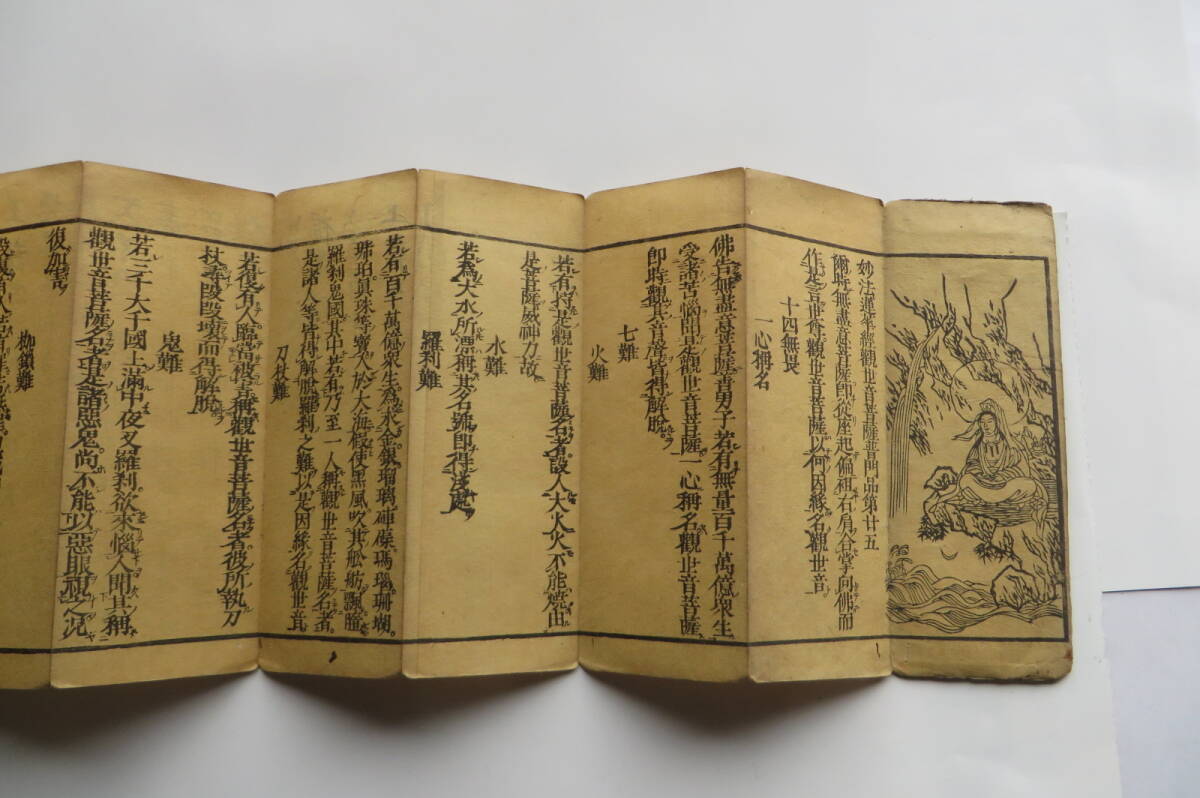 妙法蓮華經觀世音菩薩普門品第廿五
爾時無盡意菩薩即從座起偏袒右肩合掌向佛而
作是言世尊觀世音菩薩以何因緣名觀世音
十四無畏
一心稱名
佛告無盡意菩薩善男子若有無量百千萬億衆生
受諸苦惱聞是觀世音菩薩一心稱名觀世音菩薩
即時觀其音聲皆得解脫
七難
火難
若有持是觀世音菩薩名者設入大火火不能燒由
是菩薩威神力故
水難
若為大水所漂稱其名號即得淺處
羅刹難
若有百千萬億衆生為求金銀瑠璃硨磲瑪瑙珊瑚
琥珀眞珠等寶入於大海假使黑風吹其舩舫飄墮
羅刹鬼國其中若有乃至一人稱觀世音菩薩名者
是諸人等皆得解脫羅刹之難以是因緣名觀世音
刀杖難
若復有人臨當被害稱觀世音菩薩名者彼所執刀
杖尋段段壞而得解脫
鬼難
若三千大千國土滿中夜叉羅刹欲來惱人聞其稱
觀世音菩薩名者是諸惡鬼尚不能以惡眼視之況
復加害
枷鎖難